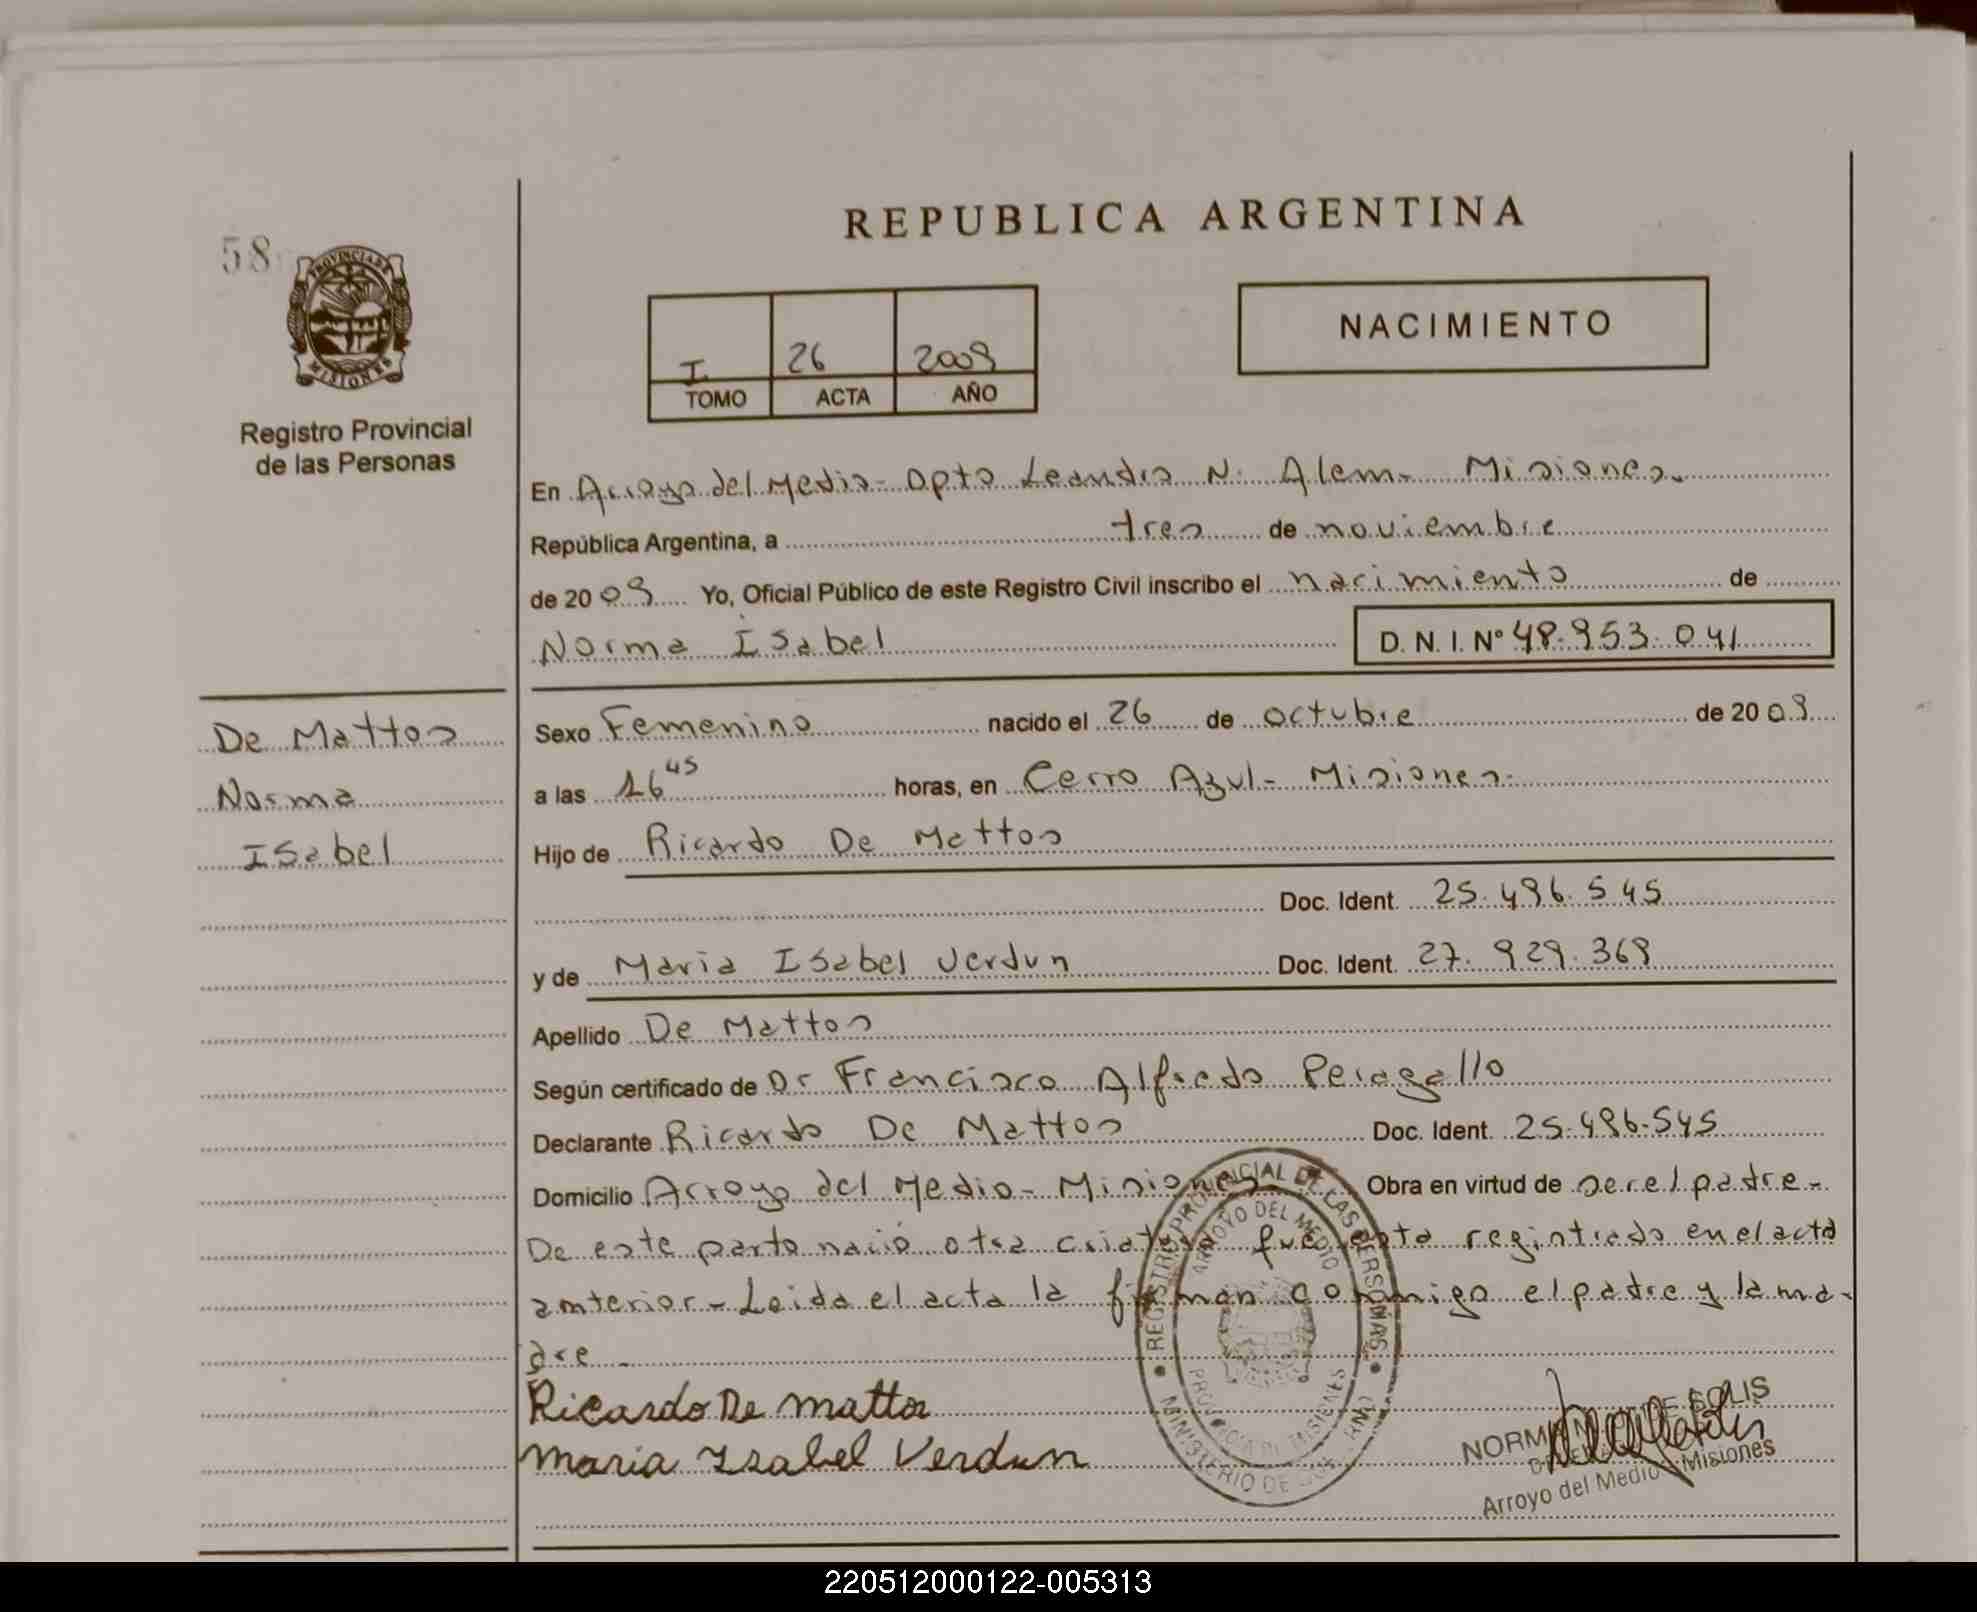 REPUBLICA ARGENTINA
58
PROVINCIA DE
MISIONES
Registro Provincial
de las Personas
I 26 2009
TOMO ACTA AÑO
NACIMIENTO
En Arroyo del Medio - Dpto Leandro N. Alem - Misiones.
República Argentina, a tres de noviembre
de 2009 Yo, Oficial Público de este Registro Civil inscribo el nacimiento de
Norma Isabel D. N. I. Nº 48.953.041
De Mattos
Norma
Isabel
Sexo Femenino nacido el 26 de octubre de 2009
a las 16 45 horas, en Cerro Azul - Misiones.
Hijo de Ricardo De Mattos
Doc. Ident. 25.496.545
y de Maria Isabel Verdun Doc. Ident. 27.929.369
Apellido De Mattos
Según certificado de Dr Francisco Alfredo Peragallo
Declarante Ricardo De Mattos Doc. Ident. 25.496.545
Domicilio Arroyo del Medio - Misiones Obra en virtud de ser el padre -
De este parto nació otra criatura fue esta registrada en el acta
anterior - Leida el acta la firman conmigo el padre y la ma-
dre -
Ricardo De mattos
maria Isabel Verdun
REGISTRO PROVINCIAL DE LAS PERSONAS
ARROYO DEL MEDIO
PROVINCIA DE MISIONES
MINISTERIO DE
NORMA DE SOLIS
Arroyo del Medio - Misiones
220512000122-005313